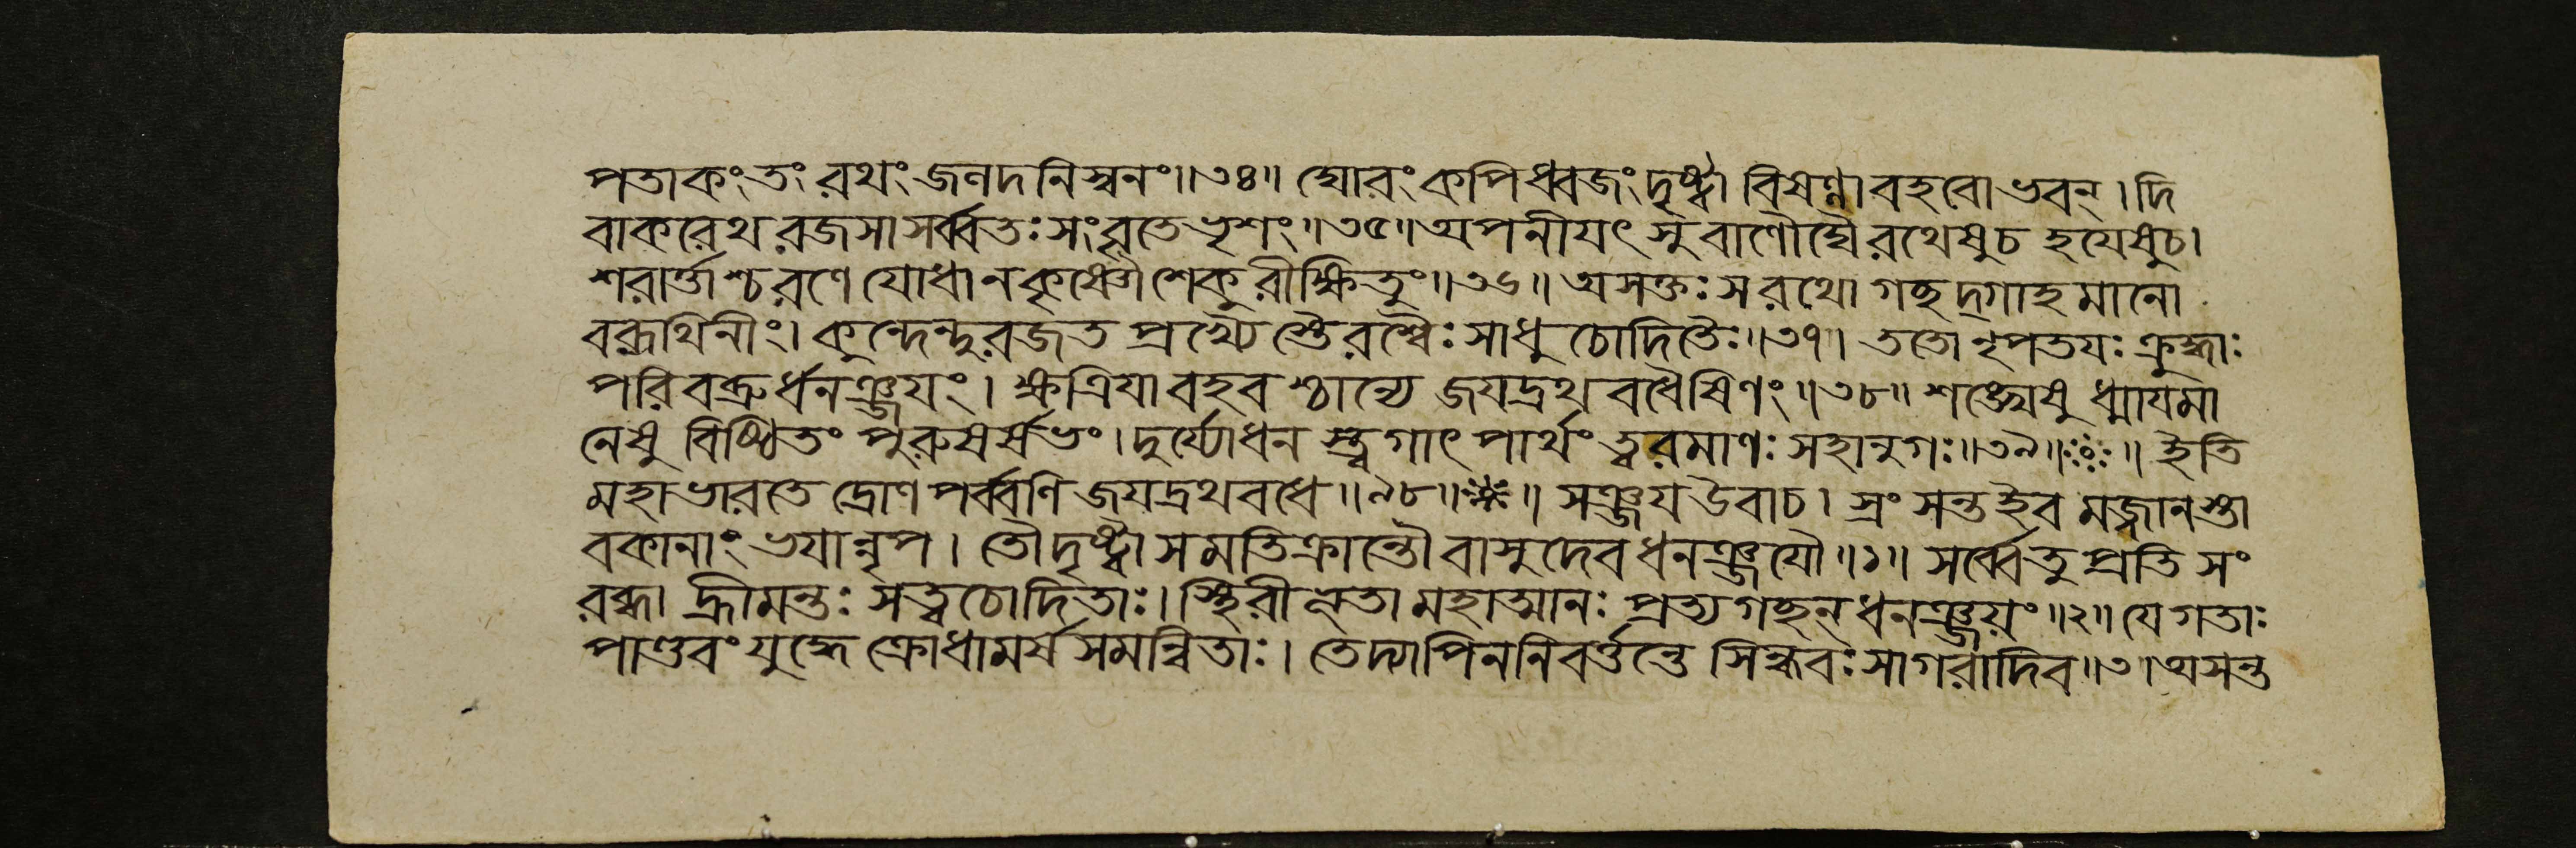 পতাকং তং রথং জলদনিস্বনং॥৩৪॥ ঘোরং কপিধ্বজং দৃষ্ট্বা বিষণ্ণা বহবোভবন্। দি
বাকরেথ রজসা সর্ব্বতঃ সংবৃতে ভৃশং॥৩৫॥ অপনীযৎসু বাণৌঘৈ রথেষু চ হযেষু চ।
শরার্ত্তাশ্চ রণে যোধা ন কৃষ্ণৌ শেকুরীক্ষিতুং॥৩৬॥ অসক্তঃ স রথো গছদ্গাহমানো
বরূথিনীং। কুন্দেন্দুরজত প্রখ্যৈস্তৈরশ্বৈঃ সাধু চোদিতৈঃ॥৩৭। ততো নৃপতযঃ ক্রুদ্ধাঃ
পরিবব্রুর্ধনঞ্জযং। ক্ষত্রিযা বহবশ্চান্যে জযদ্রথ বধৈষিণং॥৩৮॥ শঙ্খেষু ধ্মাযমা
নেষু বিষ্ঠিতং পুরুষর্ষভং। দুর্য্যোধন স্ত্বগাৎ পার্থং ত্বরমাণঃ সহানুগঃ॥৩৯॥ ॥ ইতি
মহাভারতে দ্রোণপর্ব্বণি জযদ্রথবধে॥৯৮॥ ॥ সঞ্জয উবাচ। স্রংসন্ত ইব মজ্জানস্তা
বকানাং ভযান্নৃপ। তৌ দৃষ্ট্বা সমতিক্রান্তৌ বাসুদেব ধনঞ্জযৌ॥১॥ সর্ব্বে তু প্রতি সং
রব্ধা হ্রীমন্তঃ সত্ত্বচোদিতাঃ। স্থিরীভূতা মহাত্মানঃ প্রত্যগছন্ ধনঞ্জযং॥২॥ যে গতাঃ
পাণ্ডবং যুদ্ধে ক্রোধামর্ষ সমন্বিতাঃ। তেদ্যাপি ন নিবর্ত্তন্তে সিন্ধবঃ সাগরাদিব॥৩। অসন্ত